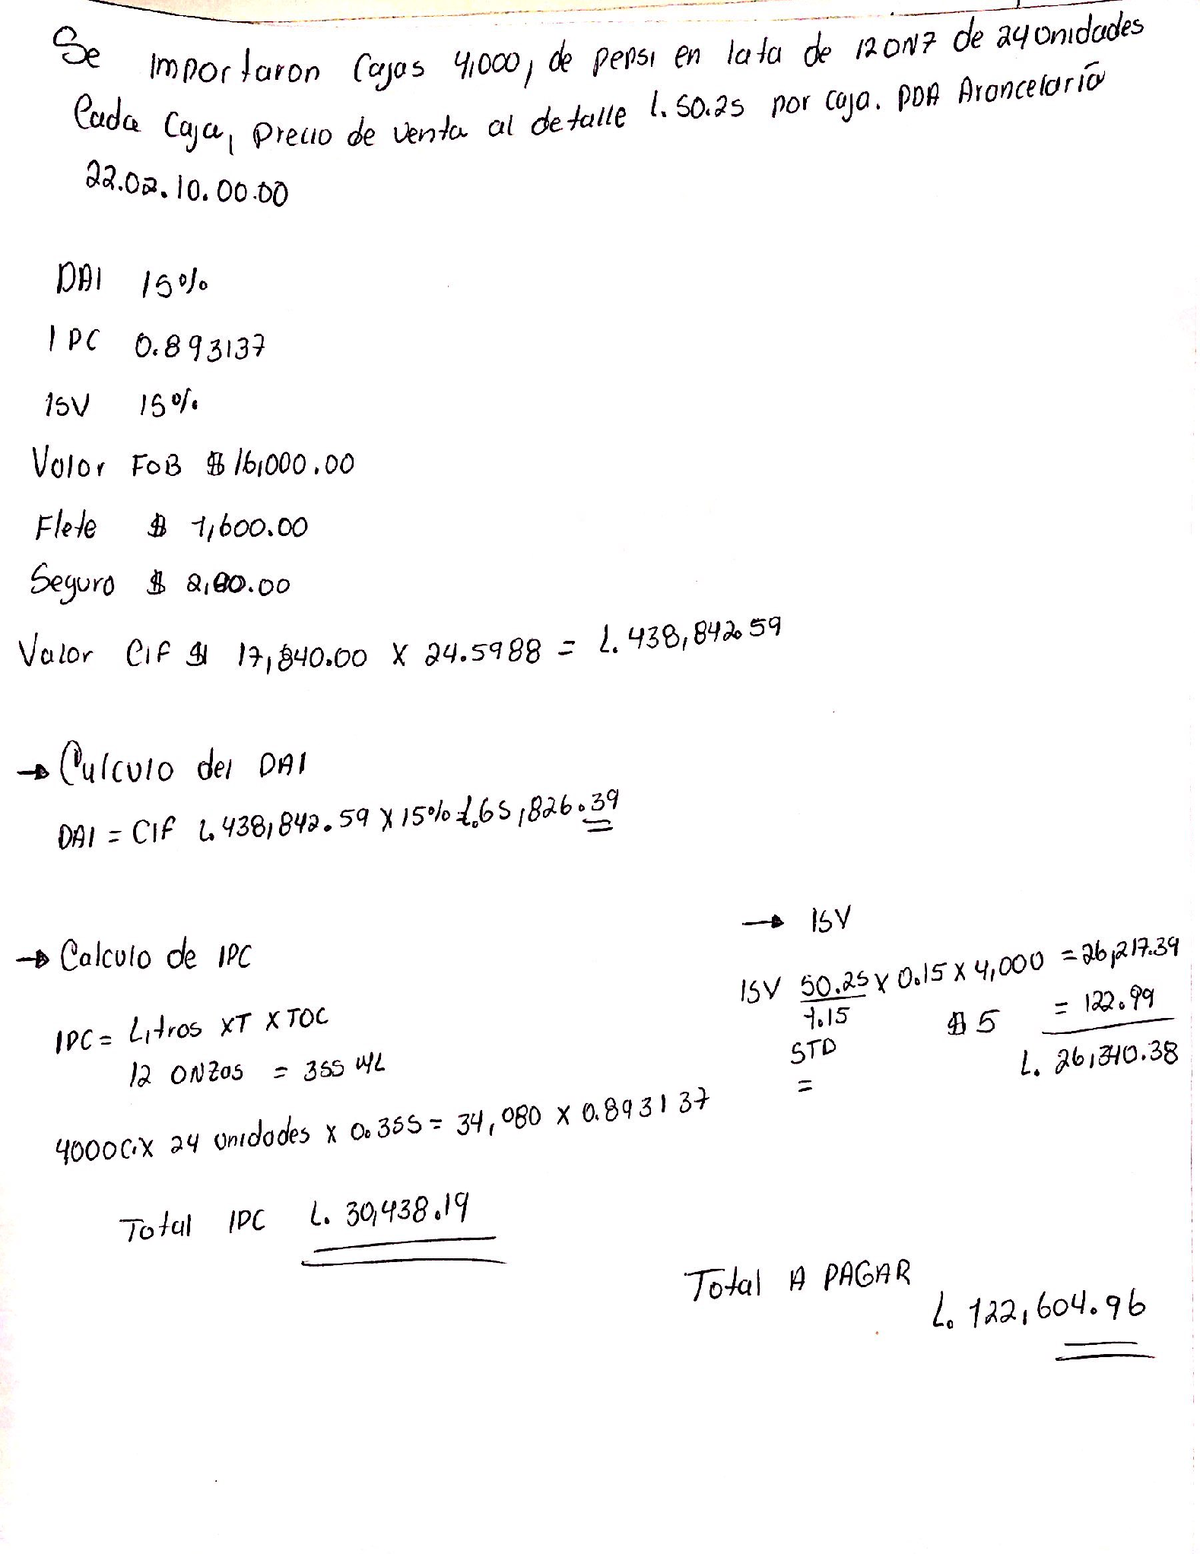 Se importaron Cajas 4,000, de pepsi en lata de 12 ONZ de 24 unidades
Cada Caja, precio de venta al detalle L. 50.25 por caja. PDA Arancelaria
22.02.10.00.00
DAI 15%
IPC 0.893137
ISV 15%
Valor FOB $ 16,000.00
Flete $ 1,600.00
Seguro $ 2,00.00
Valor CIF $ 17,840.00 X 24.5988 = L. 438,842.59
→ Calculo del DAI
DAI = CIF L. 438,842.59 X 15% L. 65,826.39
→ ISV
→ Calculo de IPC
ISV 50.25 X 0.15 X 4,000 = 26,217.39
1.15 $ 5 = 122.99
IPC = Litros XT X TOC
STD L. 26,340.38
=
12 ONZas = 355 ML
4000 CX 24 unidades x 0.355 = 34,080 X 0.893137
Total IPC L. 30,438.19
Total A PAGAR
L. 122,604.96